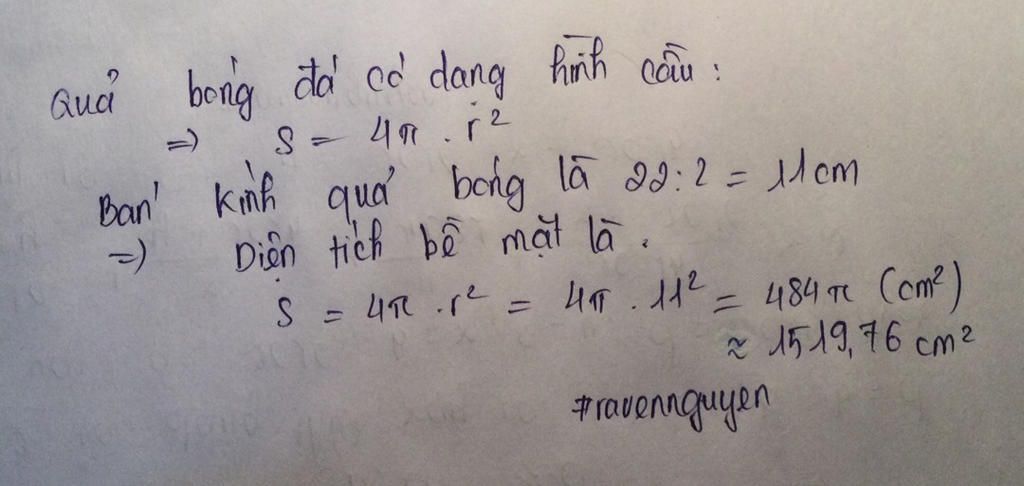 Quả bóng đá có dạng hình cầu:
=> S = 4π . r²
Bán kính quả bóng là 22:2 = 11cm
=> Diện tích bề mặt là.
S = 4π . r² = 4π . 11² = 484π (cm²)
≈ 1519,76 cm²
#ravennguyen